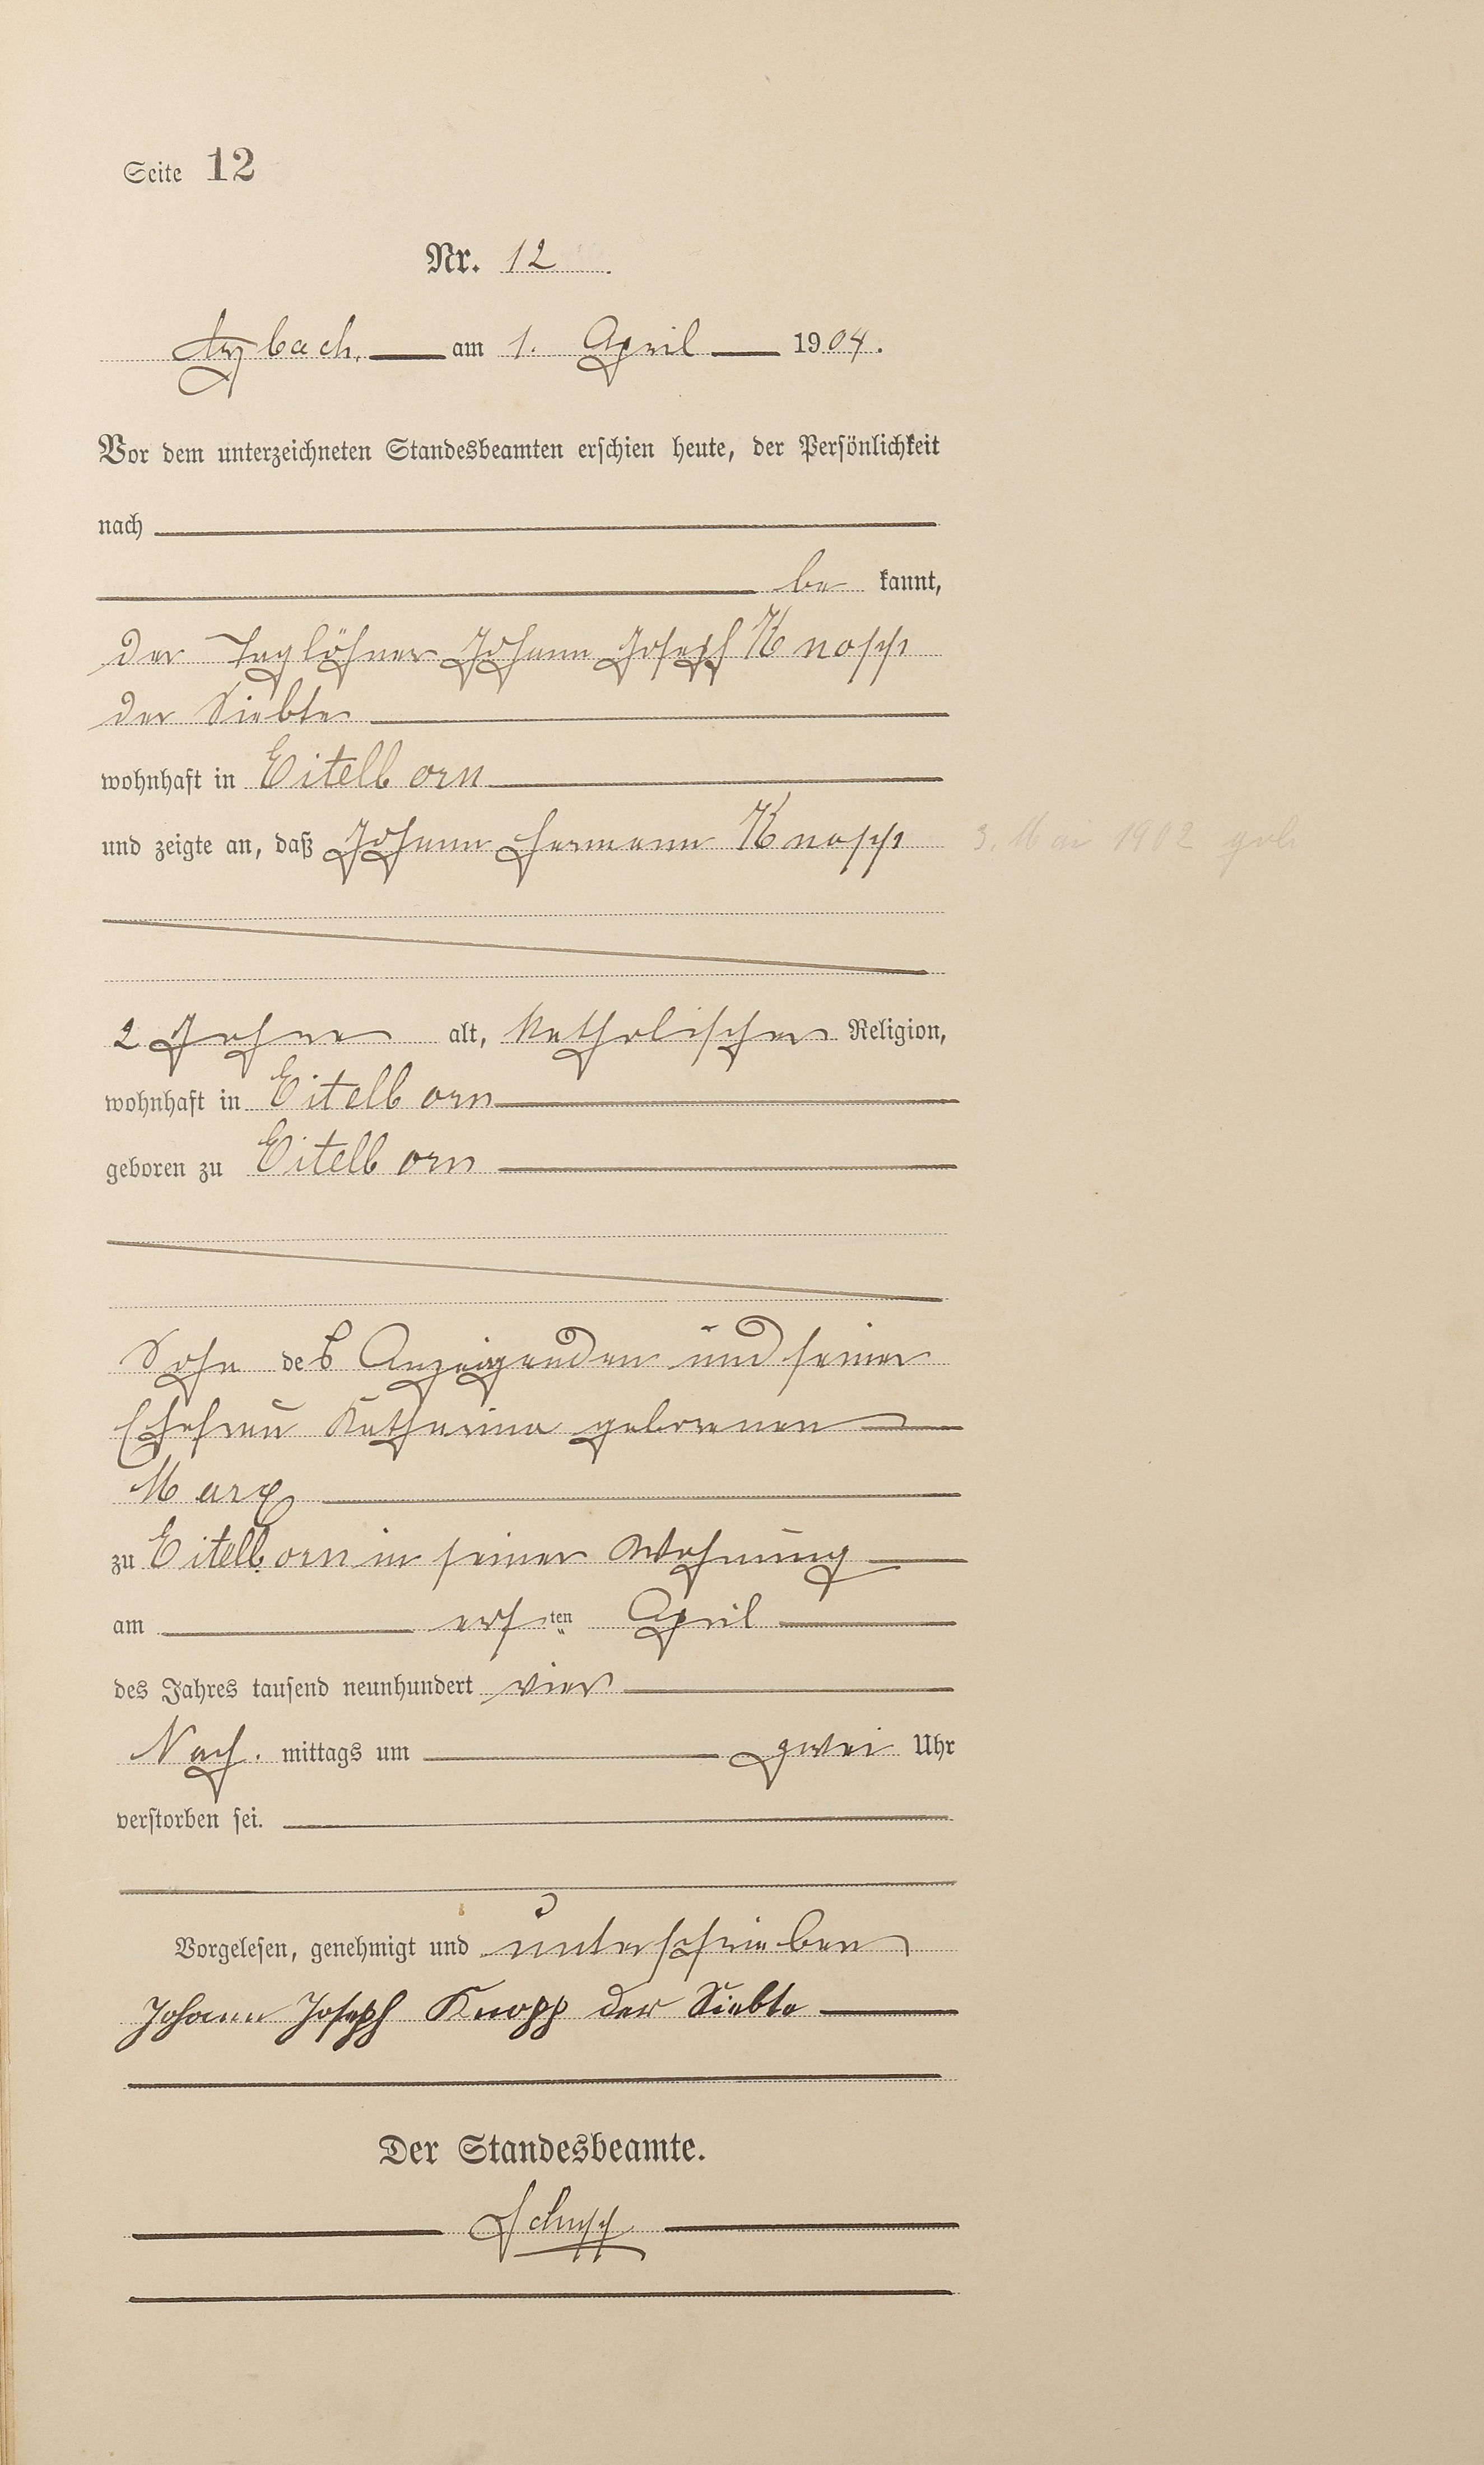 Seite 12
Nr. 12
Arzbach, am 1. April 1904.
Vor dem unterzeichneten Standesbeamten erschien heute, der Persönlichkeit
nach
be kannt,
der Taglöhner Johann Joseph Knopp
der Siebte
wohnhaft in Eitelborn
und zeigte an, daß Johann Hermann Knopp
3. Mai 1902 geb.
2 Jahre alt, katholischer Religion,
wohnhaft in Eitelborn
geboren zu Eitelborn
Sohn des Anzeigenden und seiner
Ehefrau Katharina geborenen
Marx
zu Eitelborn in seiner Wohnung
am ersten April
des Jahres tausend neunhundert vier
Nach. mittags um zwei Uhr
verstorben sei.
Vorgelesen, genehmigt und unterschrieben
Johann Joseph Knopp der Siebte
Der Standesbeamte.
Schupp